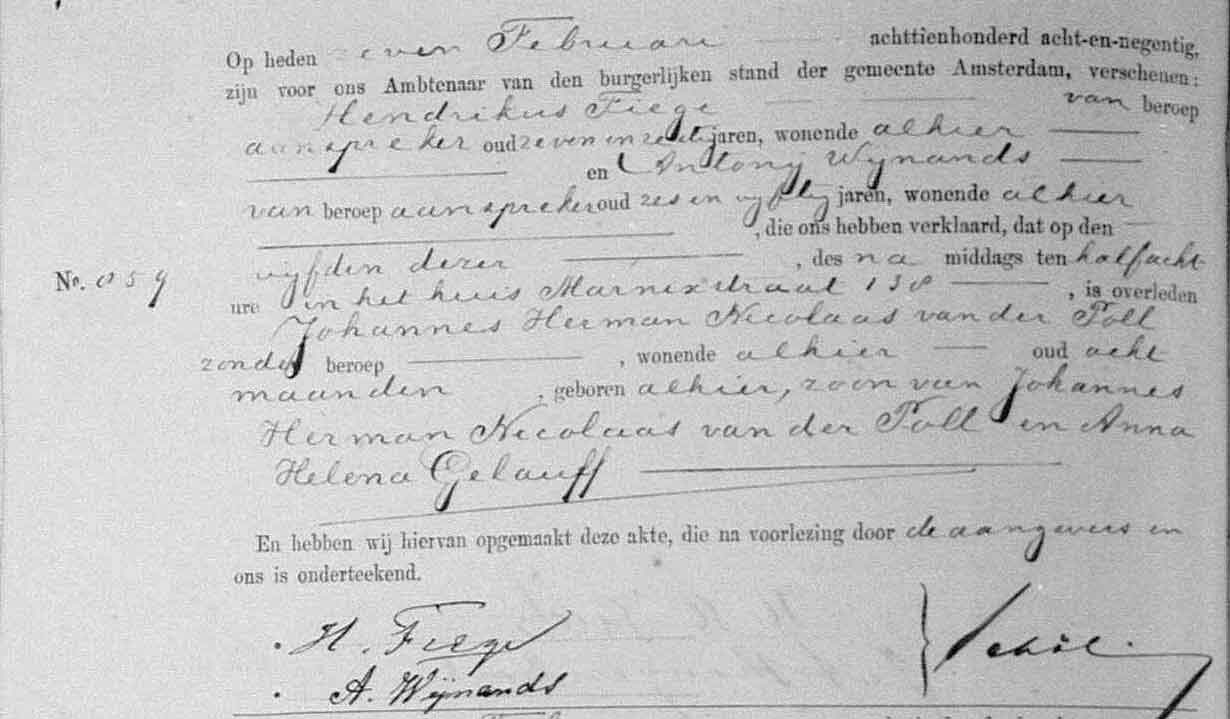 Op heden zeven Februari achttienhonderd acht-en-negentig,
zijn voor ons Ambtenaar van den burgerlijken stand der gemeente Amsterdam, verschenen:
Hendrikus Fiege van beroep
aanspreker oud zeven en zestig jaren, wonende alhier
en Antony Wynands
van beroep aanspreker oud zes en vyftig jaren, wonende alhier
, die ons hebben verklaard, dat op den
vyfden dezer , des na middags ten half acht
No. 859
ure in het huis Marnixstraat , is overleden
Johannes Herman Nicolaas van der Poll
zonder beroep , wonende alhier oud acht
maanden , geboren alhier, zoon van Johannes
Herman Nicolaas van der Poll en Anna
Helena Gelauff
En hebben wij hiervan opgemaakt deze akte, die na voorlezing door de aangevers en
ons is onderteekend.
H. Fiege
A. Wijnands